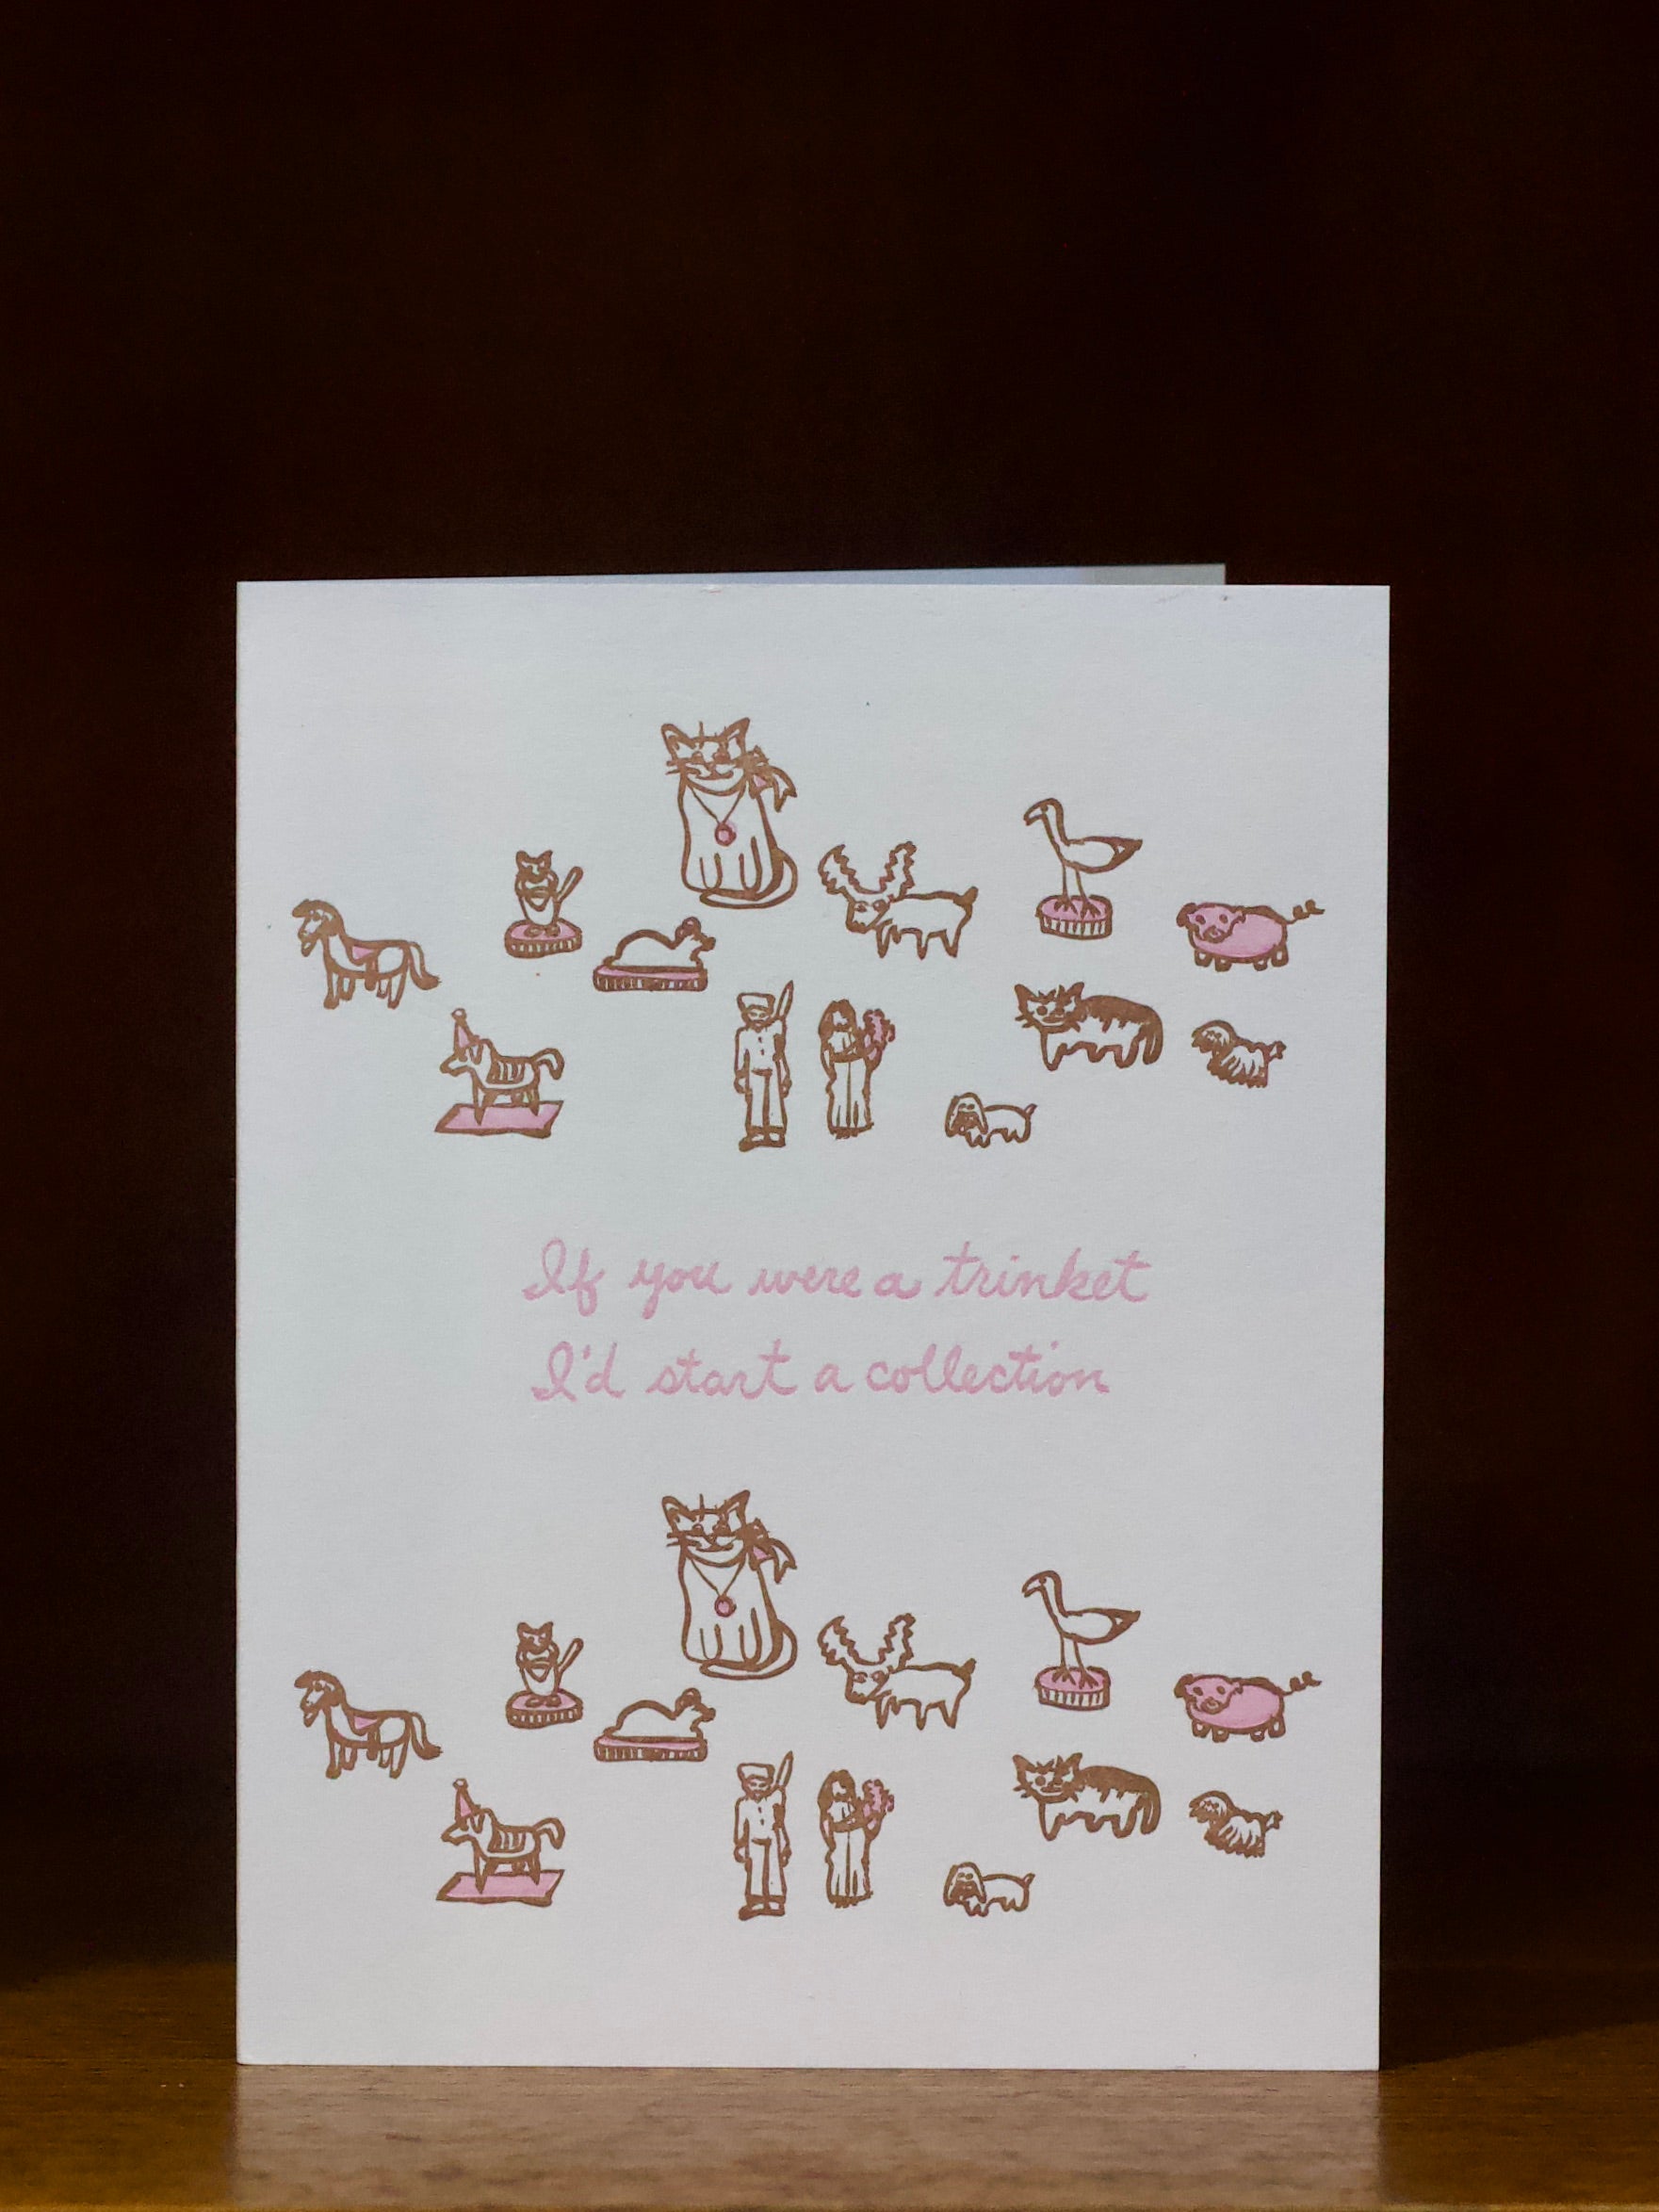 If you were a trinket
I'd start a collection